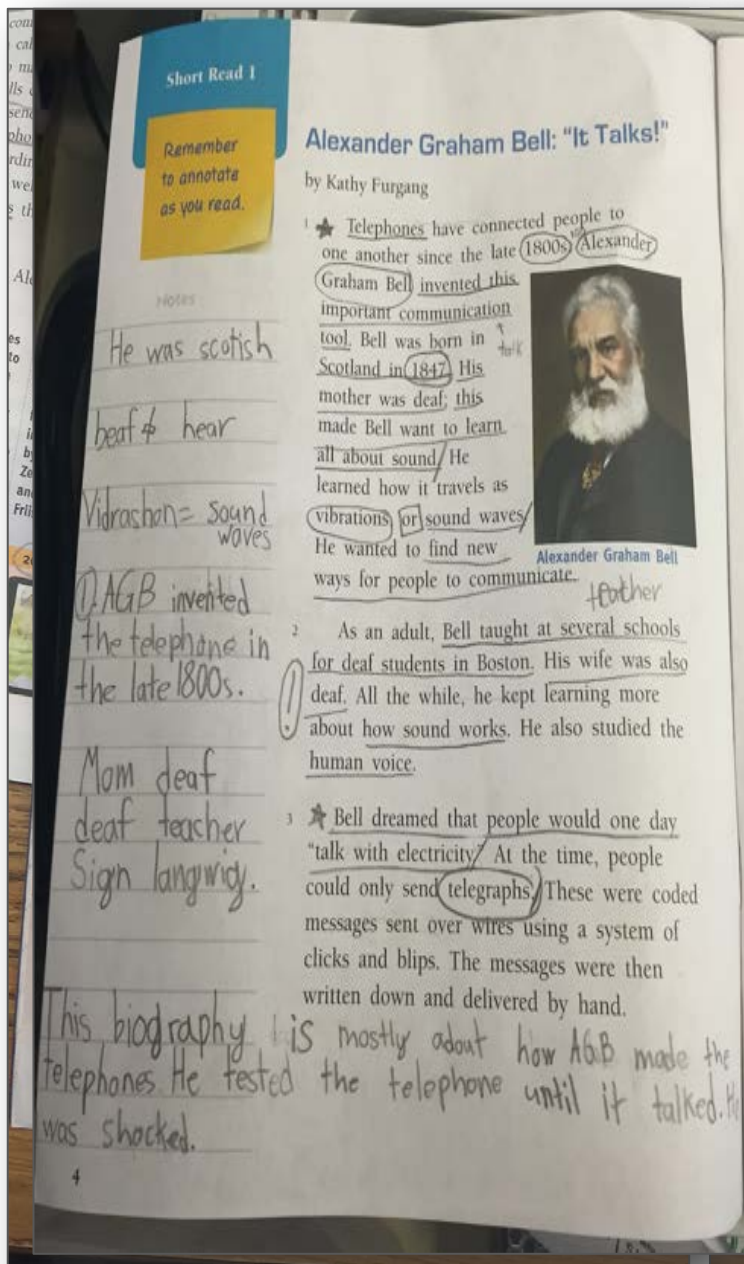 com
cal
lls
send
pho
rdin
we
Al
es
to
by
Ze
and
Frii
Short Read 1
Remember
to annotate
as you read.
Alexander Graham Bell: “It Talks!”
by Kathy Furgang
Notes
He was scotish
beaf & hear
Vidrashon = sound
waves
1. AGB invented
the telephone in
the late 1800s.
Mom deaf
deaf teacher
Sign langwigy.
1 ★ Telephones have connected people to
one another since the late 1800s. Alexander
Graham Bell invented this
important communication
tool. Bell was born in
talk
Scotland in 1847. His
mother was deaf; this
made Bell want to learn
all about sound. He
learned how it travels as
vibrations, or sound waves.
He wanted to find new
ways for people to communicate.
Alexander Graham Bell
teather
2 As an adult, Bell taught at several schools
for deaf students in Boston. His wife was also
! deaf. All the while, he kept learning more
about how sound works. He also studied the
human voice.
3 ★ Bell dreamed that people would one day
“talk with electricity.” At the time, people
could only send telegraphs. These were coded
messages sent over wires using a system of
clicks and blips. The messages were then
written down and delivered by hand.
This biography is mostly adout how AGB made the
telephones. He tested the telephone until it talked. He
was shocked.
4